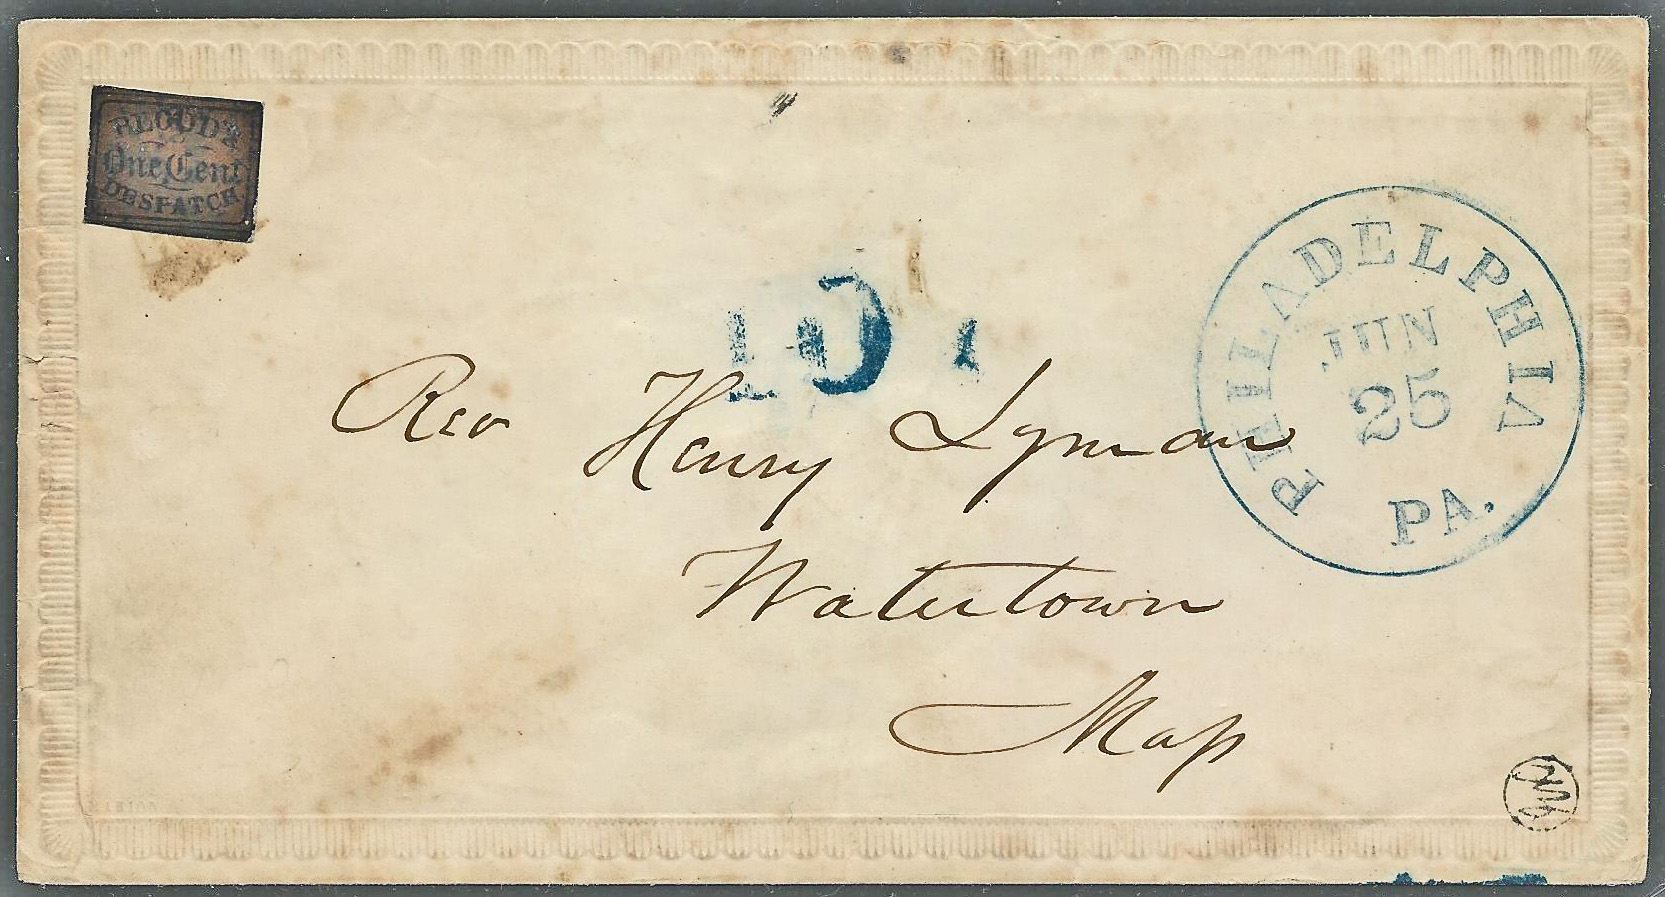 BLOOD'S
One Cent
DESPATCH
10
PHILADELPHIA
JUN
25
PA.
Rev Henry Lyman
Watertown
Mass